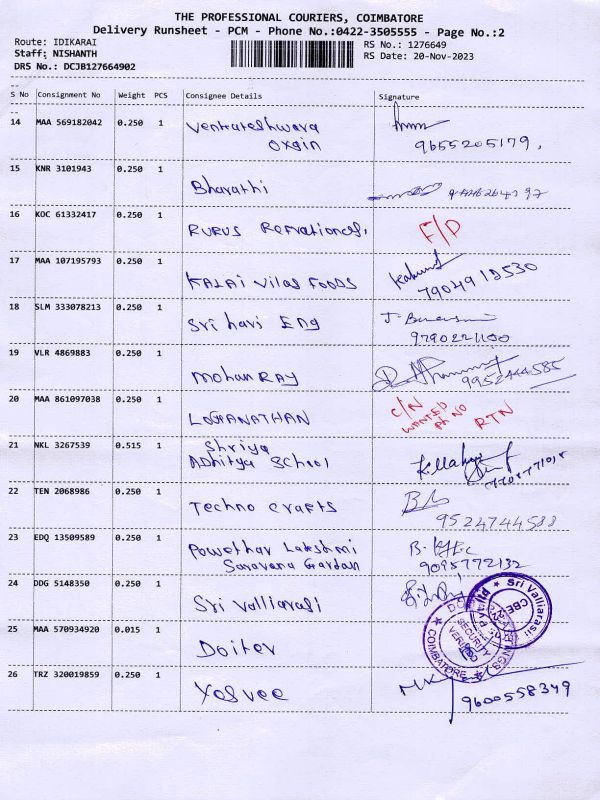 THE PROFESSIONAL COURIERS, COIMBATORE
Delivery Runsheet - PCM - Phone No.:0422-3505555 - Page No.:2
Route: IDIKARAI
RS No.: 1276649
Staff: NISHANTH
RS Date: 20-Nov-2023
DRS No.: DCJB127664902
S No Consignment No Weight PCS Consignee Details Signature
14 MAA 569182042 0.250 1 Venkateshwara
Oxgin 9655205179.
15 KNR 3101943 0.250 1 Bharathi
16 KOC 61332417 0.250 1 RURUS F/D
17 MAA 107195793 0.250 1 KALAI Vilas FOODS
7904912530
18 SLM 333078213 0.250 1 Sri hari Eng
9790221100
19 VLR 4869883 0.250 1 mohan RAY 9952444585
20 MAA 861097038 0.250 1 LOGANATHAN C/N
WANTED
PH NO RTN
21 NKL 3267539 0.515 1 Shriya
ADhitya School
22 TEN 2068986 0.250 1 Techno crafts
9524744588
23 EDQ 13509589 0.250 1 Powethar Lakshmi
Saravana Garden 9095772132
24 DDG 5148350 0.250 1 Sri Valliarasi
Sri Valliarasi
CBE-22
25 MAA 570934920 0.015 1 Doiter
SECURITY
VERIFIED
COIMBATORE
26 TRZ 320019859 0.250 1 Yosvee
9600558349